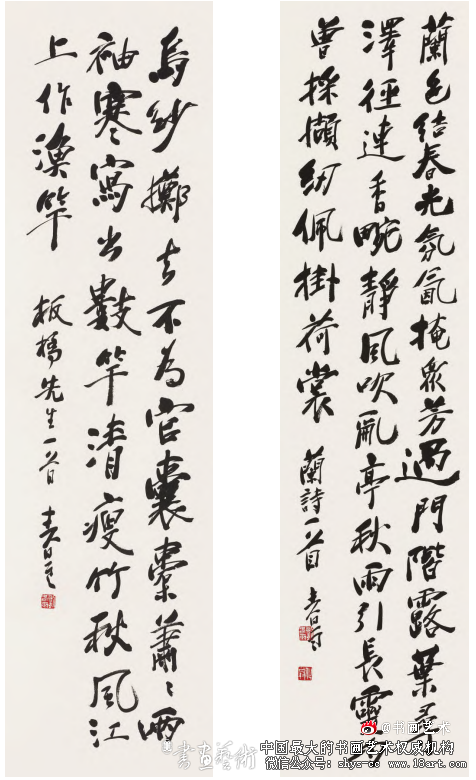 蘭色結春光氛氳掩衆芳過門階露葉尋
澤徑連香畹靜風吹亂亭秋雨引長靈均
曾採擷紉佩掛荷裳
蘭詩一首
烏紗擲去不為官囊橐蕭〻兩
袖寒寫出數竿清瘦竹秋風江
上作漁竿
板橋先生一首
@书画艺术
書畫藝術
中国最大的书画艺术权威机构